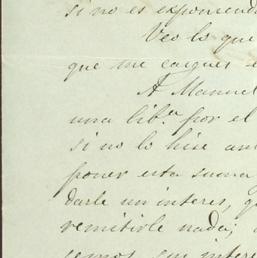 si no es exponiendo
Veo lo que
que me cargues
A Manuel
una lib.ª por el
si no lo hise an
poner esta suma
darle un interes, q
remitirle nada;
semos sin interes